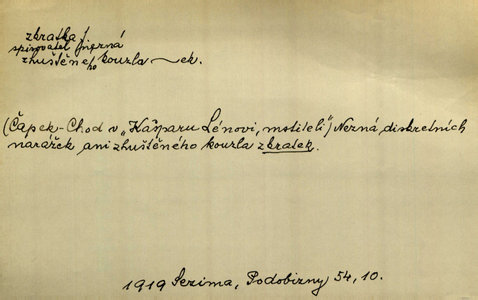 zkratka f.
spisovatel nezná
zhuštěného kouzla ~ek.
(Čapek-Chod v „Kašparu Lénovi, mstiteli“) Nezná diskretních
narážek ani zhuštěného kouzla zkratek.
1919 Sezima, Podobizny 54, 10.